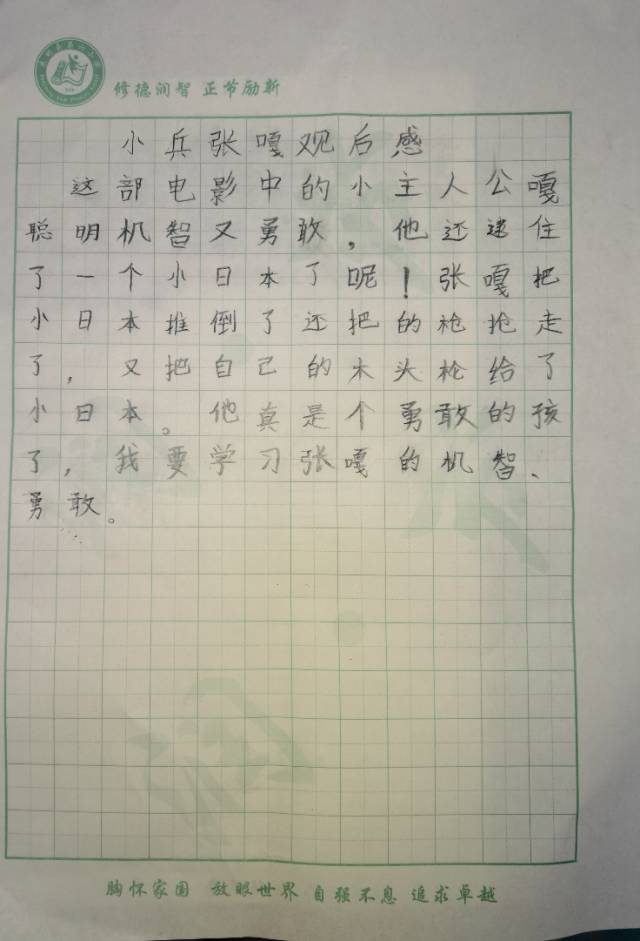 修德润智 正节励新
小兵张嘎观后感
这部电影中的小主人公嘎
聪明机智又勇敢，他还逮住
了一个小日本了呢！张嘎把
小日本推倒了还把的枪抢走
了，又把自己的木头枪给了
小日本。他真是个勇敢的孩
了，我要学习张嘎的机智、
勇敢。
胸怀家国 放眼世界 自强不息 追求卓越